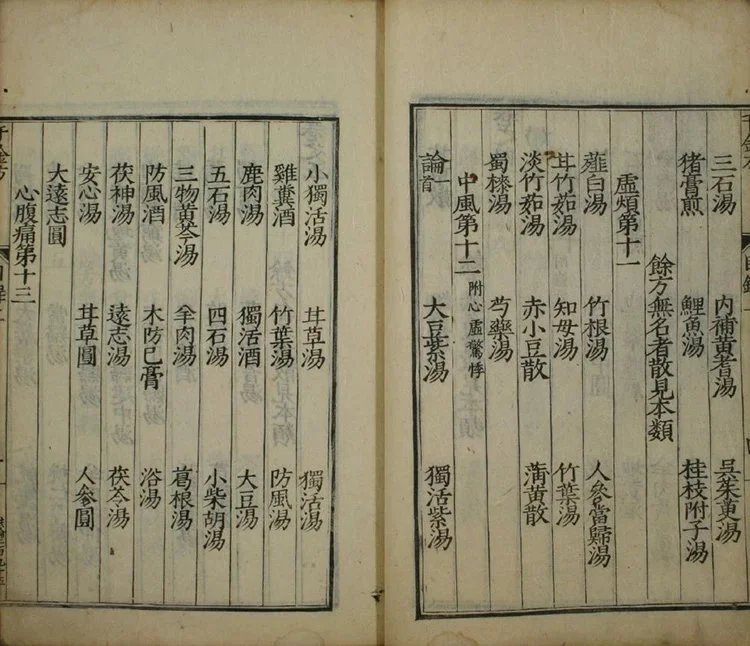 三石湯 內補黃耆湯 吳朱萸湯
猪膏煎 鯉魚湯 桂枝附子湯
餘方無名者散見本類
虛煩第十一
薤白湯 竹根湯 人參當歸湯
甘竹茹湯 知母湯 竹葉湯
淡竹茹湯 赤小豆散 蒲黃散
蜀椒湯 芍藥湯
中風第十二 附心虛驚悸
論一首 大豆紫湯 獨活紫湯
小獨活湯 甘草湯 獨活湯
雞糞酒 竹葉湯 防風湯
鹿肉湯 獨活酒 大豆湯
五石湯 四石湯 小柴胡湯
三物黃芩湯 羊肉湯 葛根湯
防風酒 木防已膏 浴湯
茯神湯 遠志湯 茯苓湯
安心湯 甘草圓 人參圓
大遠志圓
心腹痛第十三